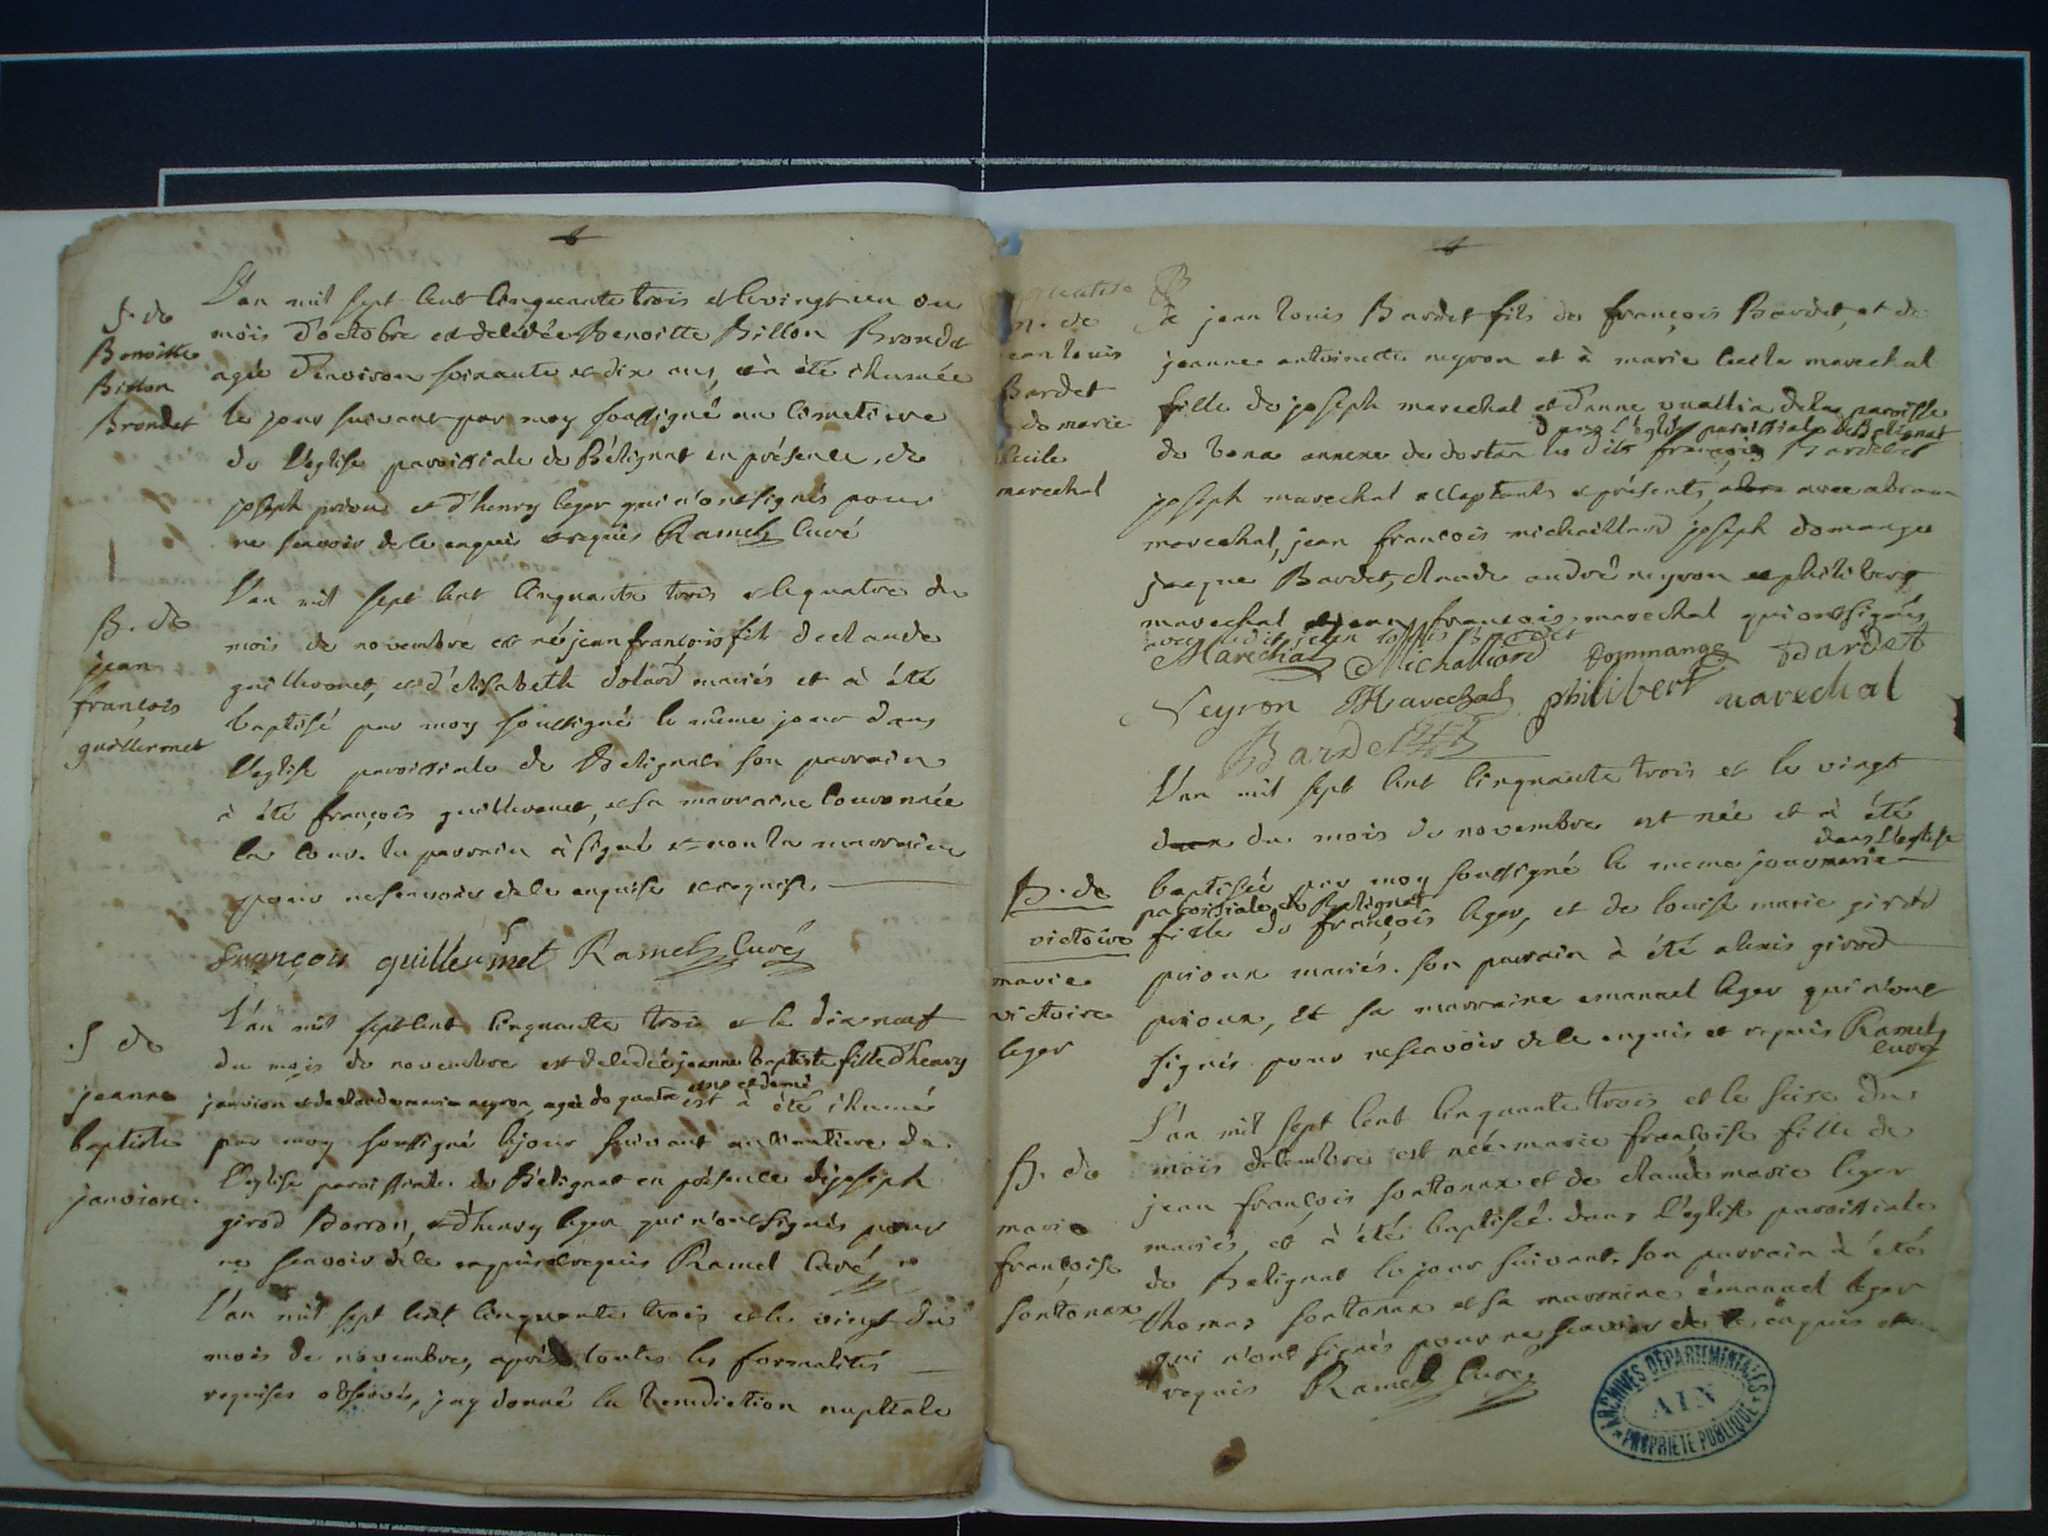 S. de
Benoitte
Billon
Brondet
L'an mil sept cent cinquante trois et le vingt un du
mois d'octobre est decedée Benoitte Billon Brondet
agée d'environ soixante et dix ans, et à été ihumée
le jour suivant par moy soussigné au cimetiere
de l'eglise paroissiale de Bélignat en présence de
joseph prion et d'henry leger qui n'ont signés pour
ne scavoir de ce enquis et requis Ramel Curé
B. de
jean
françois
guillermet
L'an mil sept cent cinquante trois et le quatre du
mois de novembre est né jean françois fils de claude
guillermet, et d'elisabeth dolard mariés et à été
baptisé par moy soussigné le même jour dans
l'eglise paroissiale de Belignat son parrain
à été françois guillermet, et sa marraine
la parrain à signé et non la marraine
pour ne scavoir de ce enquise et requise
françois guillermet Ramel Curé
S de
jeanne
baptiste
janvion
L'an mil sept cent cinquante trois et le dix neuf
du mois de novembre est decedée jeanne baptiste fille d'henry
janvion et de claudemarie neyron, agée de quatre ans et demi
et à été ihumée
par moy soussigné le jour suivant au cimetiere de
l'eglise paroissiale de Bélignat en présence de joseph
girod Borron, et d'henry leger qui n'ont signés pour
ne scavoir de ce enquis et requis Ramel Curé
L'an mil sept cent cinquante trois et le vingt du
mois de novembre, après toutes les formalités
requises observés, j'ay donné la benediction nuptiale
M. de
jean louis
Bardet
de marie
cecile
marechal
à jean louis Bardet fils de françois Bardet, et de
jeanne antoinette neyron et à marie cecile marechal
fille de joseph marechal et d'anne vuallin de la paroisse
dans l'eglise paroissiale de Belignat
de vena annexe de dortan les dits françois Bardet et
joseph marechal acceptants et présents, avec
marechal, jean françois michaillard joseph domange
jacque Bardet, claude andré neyron et philibert
marechal et jean françois marechal qui ont signés
avec ledit jean louis Bardet
Marechal Michalliard Dommange Bardet
Neyron Marechal philibert marechal
Bardet
B. de
victoire
marie
victoire
leger
L'an mil sept cent cinquante trois et le vingt
deux du mois de novembre est née et à été
dans l'eglise
baptisée par moy soussigné le meme jour marie
paroissiale de Belignat
fille de françois leger, et de louise marie girod
prioux mariés. son parrain à été alexis girod
prioux, et sa marraine emanuel leger qui n'ont
signés pour ne scavoir de ce enquis et requis Ramel
curé
B. de
marie
françoise
sontonax
L'an mil sept cent cinquante trois et le seise du
mois decembre est née marie françoise fille de
jean françois sontonax et de claude marie leger
mariés, et à été baptisée dans l'eglise paroissiale
de Belignat le jour suivant. son parrain à été
thomas sontonax et sa marraine émanuel leger
qui n'ont signés pour ne scavoir de ce enquis et
requis Ramel Curé
ARCHIVES DÉPARTEMENTALES
AIN
PROPRIÉTÉ PUBLIQUE